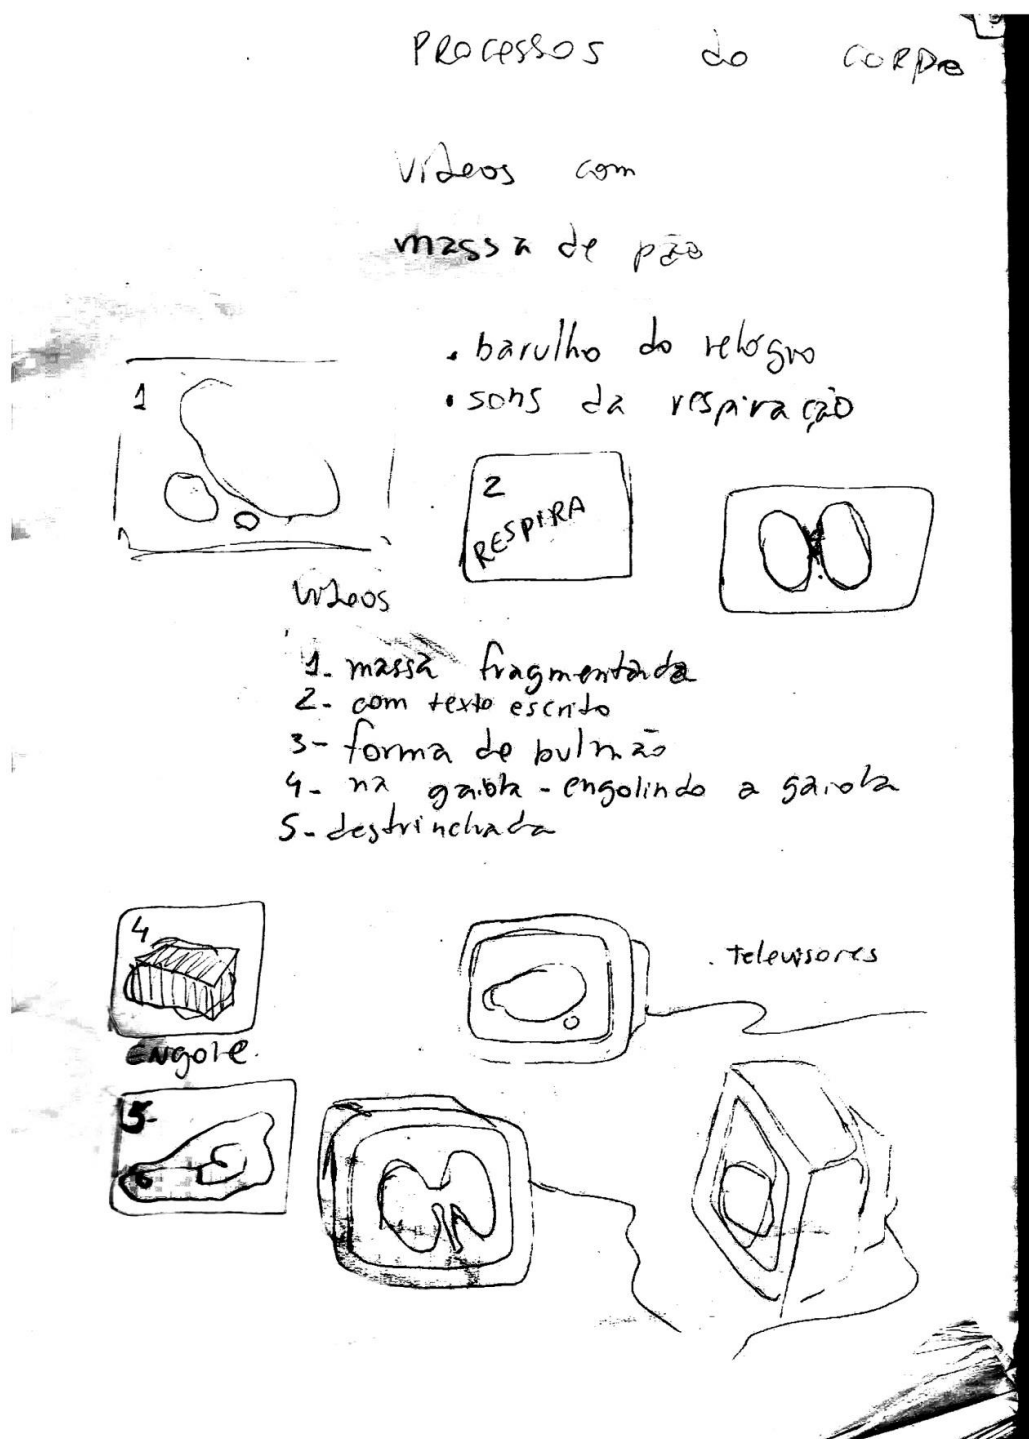 PROCESSOS do CORPO
vídeos com
massa de pão
. barulho do relógio
. sons da respiração
1
2
RESPIRA
vídeos
1. massa fragmentada
2- com texto escrito
3- forma de pulmão
4- na gaiola - engolindo a gaiola
5- destrinchada
4
. televisores
ENgole.
5-